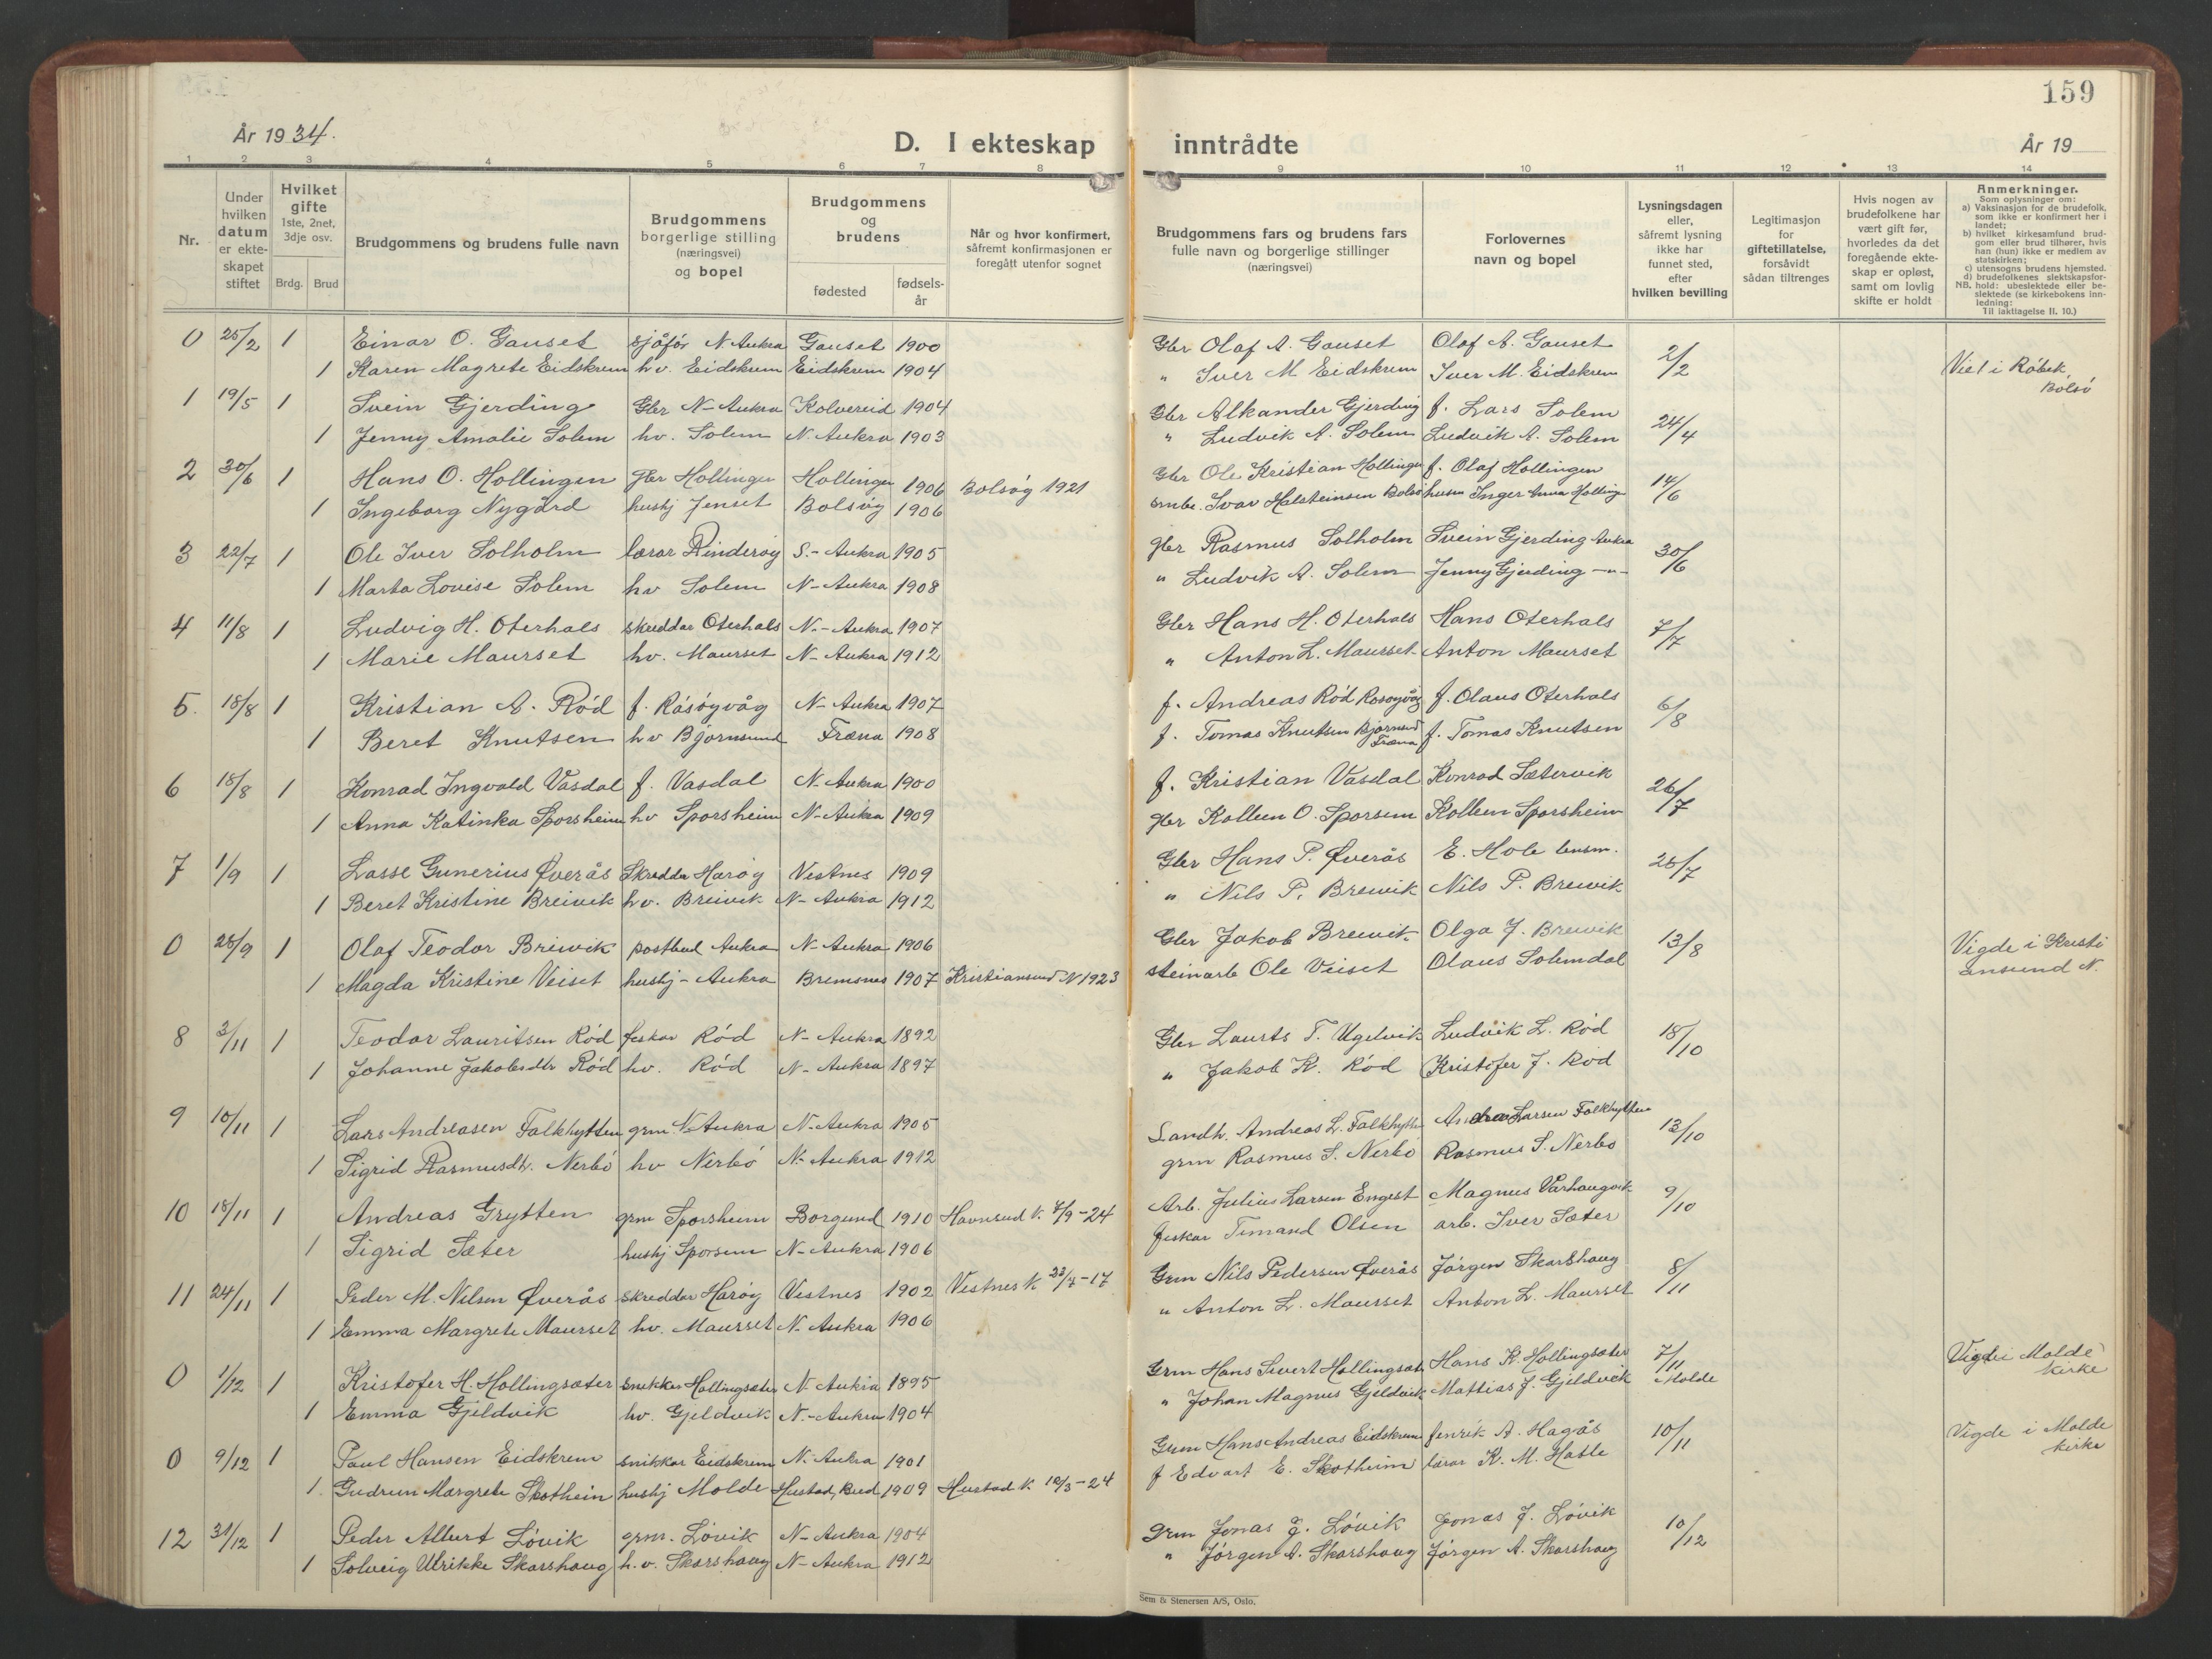 159
År 1934.
D. I ekteskap inntrådte
År 19
1 2 3 4 5 6 7 8 9 10 11 12 13 14
Nr.
Under hvilken datum er ekteskapet stiftet
Hvilket gifte 1ste, 2net, 3dje osv.
Brdg. Brud
Brudgommens og brudens fulle navn
Brudgommens borgerlige stilling (næringsvei) og bopel
Brudgommens og brudens
fødested
fødselsår
Når og hvor konfirmert, såfremt konfirmasjonen er foregått utenfor sognet
Brudgommens fars og brudens fars fulle navn og borgerlige stillinger (næringsvei)
Forlovernes navn og bopel
Lysningsdagen eller, såfremt lysning ikke har funnet sted, efter hvilken bevilling
Legitimasjon for giftetillatelse, forsåvidt sådan tiltrenges
Hvis nogen av brudefolkene har vært gift før, hvorledes da det foregående ekteskap er opløst, samt om lovlig skifte er holdt
Anmerkninger.
Som oplysninger om:
a) Vaksinasjon for de brudefolk, som ikke er konfirmert her i landet;
b) hvilket kirkesamfund brudgom eller brud tilhører, hvis han (hun) ikke er medlem av statskirken;
c) utensogns brudens hjemsted.
d) brudefolkenes slektskapsforhold: ubeslektede eller beslektede (se kirkebokens innledning:
NB.
Til iakttagelse II. 10.)
0 25/2 1 Einar O. Gauset sjåfør N. Aukra Gauset 1900 Gbr Olaf A. Gauset Olaf A. Gauset 2/2 Viet i Røbek, Bolsø
1 Karen Magrete Eidskrem hv. Eidskrem Eidskrem 1904 " Iver M Eidskrem Iver M. Eidskrem
1 19/5 1 Svein Gjerding Gbr N-Aukra Kolvereid 1904 Gbr Alkander Gjerding f. Lars Solem 24/4
1 Jenny Amalie Solem hv. Solem N. Aukra 1903 " Ludvik A. Solem Ludvik A. Solem
2 30/6 1 Hans O. Hollingen gbr Hollingen Hollingen 1906 Bolsøy 1921 Gbr Ole Kristian Hollingen f. Olaf Hollingen 14/6
1 Ingeborg Nygård hushj Jenset Bolsøy 1906 Ivar Halsteinsen Bolsø husm Inger Anna Hollingen
3 22/7 1 Ole Iver Solholm lærar Rinderøy S.-Aukra 1905 gbr Rasmus Solholm Svein Gjerding Aukra 30/6
1 Marta Lovise Solem hv Solem N-Aukra 1908 " Ludvik A. Solem Jenny Gjerding -"-
4 11/8 1 Ludvig H. Oterhals skreddar Oterhals N.-Aukra 1907 Gbr Hans H. Oterhals Hans Oterhals 7/7
1 Marie Maurset hv. Maurset N-Aukra 1912 " Anton L. Maurset Anton Maurset
5. 18/8 1 Kristian A. Rød f. Råsøyvåg N-Aukra 1907 f. Andreas Rød Rosøyvåg f. Olaus Oterhals 6/8
1 Beret Knutsen hv Bjørnsund Fræna 1908 f. Tomas Knutsen Bjørnsund Fræna f. Tomas Knutsen
6 18/8 1 Konrad Ingvald Vasdal f. Vasdal N-Aukra 1900 f. Kristian Vasdal Konrad Sætervik 26/7
1 Anna Katinka Sporsheim hv Sporsheim N-Aukra 1909 gbr Kolbein O. Sporsem Kolbein Sporsheim
7 1/9 1 Lasse Gunerius Øverås Skredder Harøy Vestnes 1909 Gbr Hans P. Øverås E. Hole lensm. 25/7
1 Beret Kristine Breivik hv. Breivik N-Aukra 1912 " Nils P. Breivik Nils P. Breivik
0 28/9 1 Olaf Teodor Breivik postbud Aukra N-Aukra 1906 Gbr Jakob Breivik Olga J. Breivik 13/8 Vigde i Kristiansund N.
1 Magda Kristine Veiset hushj-Aukra Bremsnes 1907 Kristiansund N 1923 steinarb Ole Veiset Olaus Solemdal
8 3/11 1 Teodor Lauritsen Rød fiskar Rød N-Aukra 1892 Gbr Laurts T. Ugelvik Ludvik L. Rød 18/10
1 Johanne Jakobsdtr Rød hv. Rød N-Aukra 1897 " Jakob K. Rød Kristofer J. Rød
9 10/11 1 Lars Andreasen Falkhytten grm. N Aukra N-Aukra 1905 Landh. Andreas L. Falkhytten Andreas Larsen Falkhytten 13/10
1 Sigrid Rasmusdt. Nerbø hv Nerbø N-Aukra 1912 grm Rasmus S. Nerbø Rasmus S. Nerbø
10 18/11 1 Andreas Grytten grm Sporsheim Borgund 1910 Havnsund k. 7/9-24 Arb. Julius Larsen Engeset Magnus Varhaugvik 9/10
1 Sigrid Sæter hushj Sporsem N-Aukra 1906 fiskar Timand Olsen arb. Iver Sæter
11 24/11 1 Peder M. Nilsen Øverås skredder Harøy Vestnes 1902 Vestnes k 22/7-17 Grm Nils Pedersen Øverås Jørgen Skarshaug 8/11
1 Emma Margrete Maurset hv. Maurset N-Aukra 1906 " Anton L. Maurset Anton L. Maurset
0 1/12 1 Kristofer H. Hollingsæter snekker Hollingsæter N-Aukra 1895 Grm Hans Sivert Hollingsæt Hans K. Hollingsæter 7/11 Molde Vigde i Molde kirke
1 Emma Gjeldvik hv. Gjeldvik N.-Aukra 1904 " Johan Magnus Gjeldvik Mattias J. Gjeldvik
0 9/12 1 Paul Hansen Eidskrem snikkar Eidskrem N-Aukra 1901 Grm Hans Andreas Eidskrem fenrik A. Hagås 10/11 Vigde i Molde kirke
1. Gudrun Margrete Skothein hushj Molde Hustad, Bud 1909 Hustad k. 10/3-24 f Edvart E. Skotheim lærar K. M. Hatle
12 31/12 1 Peder Albert Løvik grm. Løvik N-Aukra 1904 grm Jonas J. Løvik Jonas J. Løvik 10/12
1 Solveig Ulrikke Skarshaug h.v. Skarshaug N-Aukra 1912 " Jørgen A. Skarshaug Jørgen A. Skarshaug
Sem & Stenersen A/S, Oslo.